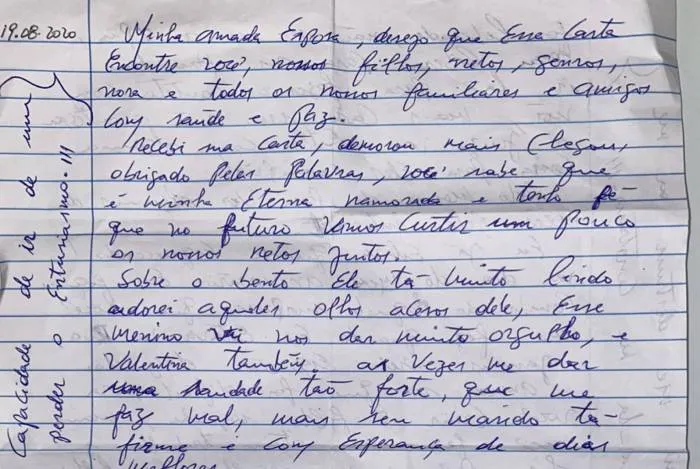 19.08.2020
Minha amada Esposa, desejo que Esse Carta
Encontre você, nossos filhos, netos, genros,
nora e todos os nossos familiares e amigos
com saúde e paz.
Recebi sua Carta, demorou mais Chegou,
obrigado Pelas Palavras, você sabe que
é minha Eterna namorada e tenho fé
que no futuro Vamos Curtir um Pouco
os nossos netos juntos.
Sobre o bento Ele tá muito lindo
adorei aqueles olhos acesos dele, Esse
menino vai nos dar muito orgulho, e
Valentina também. as Vezes me dar
uma saudade tão forte, que me
faz mal, mais seu marido tá
firme e com Esperança de dias
melhores
Capacidade de ir de um
perder o Entusiasmo.!!!